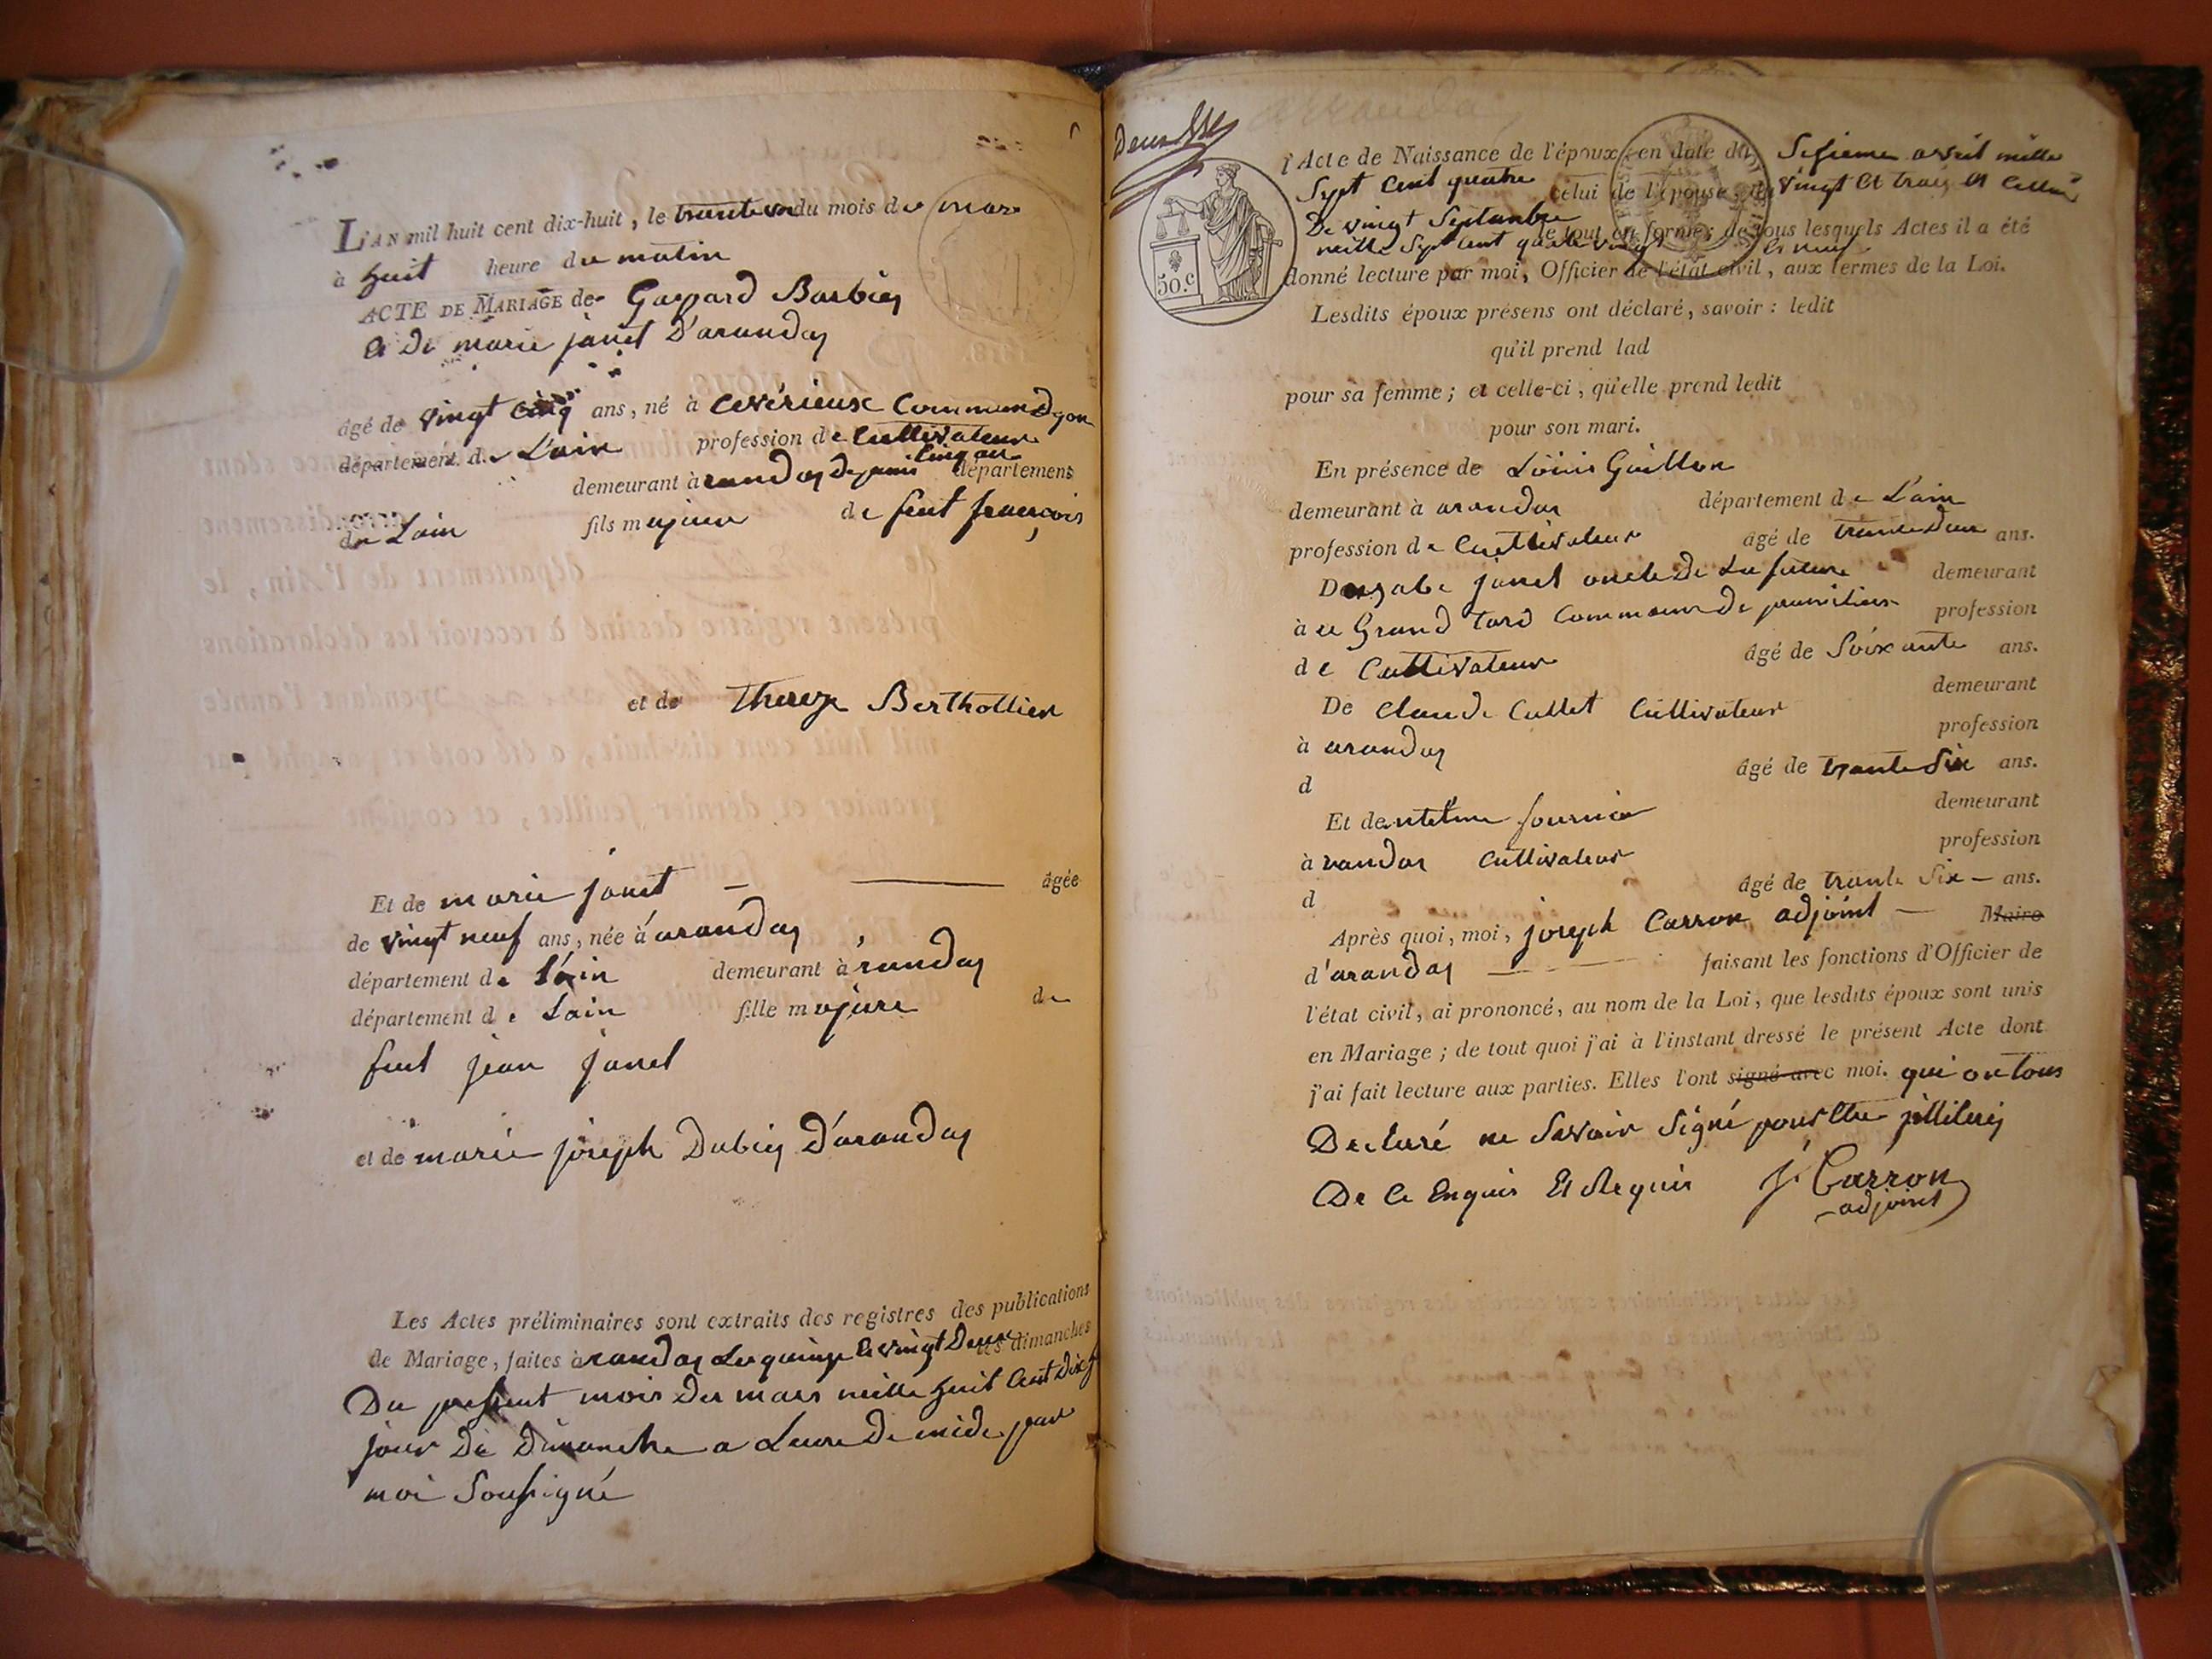 L'AN mil huit cent dix-huit, le trante un du mois de mars
à huit heure du matin
ACTE DE MARIAGE de Gaspard Barbier
Et De marie janet D'arandas
âgé de vingt cinq ans, né à Cevérieux Commune D
département de L'ain profession de Cultivateur
demeurant à randas Depuis Cinq an département
de Lain fils majeur de feut françois
et de Thereze Berthollier
Et de marie janet âgée
de vingt neuf ans, née à arandas
département de l'ain demeurant à randas
département de Lain fille majure de
feut jean janet
et de marie joseph Dubiez D'arandas
Les Actes préliminaires sont extraits des registres des publications
de Mariage, faites à randas Le quinze Et vingt Deux les dimanches
Du present mois De mars mille huit Cent Dix
jour De Dimanche a Leure De midi par
moi Soussigné
Deux
l'Acte de Naissance de l'époux, en date du avril mille
Sept Cent quatre vingt Et trais Et Cellui
celui de l'épouse, du
De vingt Septanbre
mille Sept Cent quatre vingt et neuf
le tout en formes, de tous lesquels Actes il a été
donné lecture par moi, Officier de l'état civil, aux termes de la Loi.
50.c
Lesdits époux présens ont déclaré, savoir : ledit
qu'il prend lad
pour sa femme ; et celle-ci, qu'elle prend ledit
pour son mari.
En présence de Louis Guillon
demeurant à arandas département de L'ain
profession de Cultivateur âgé de trante deux ans.
De janet oncle De La future demeurant
à Commune De profession
de Cultivateur âgé de Soixante ans.
De Claude Cullet Cultivateur demeurant
à arandas profession
d âgé de trante Six ans.
Et de fournier demeurant
à randas Cultivateur profession
d âgé de trante Six ans.
Après quoi, moi, joseph Carron adjoint Maire
d'arandas faisant les fonctions d'Officier de
l'état civil, ai prononcé, au nom de la Loi, que lesdits époux sont unis
en Mariage ; de tout quoi j'ai à l'instant dressé le présent Acte dont
j'ai fait lecture aux parties. Elles l'ont signé avec moi. qui on tous
Declaré ne Savoir Signé pour être jlliterés
De Ce Enquis Et Requis J. Carron
adjoint